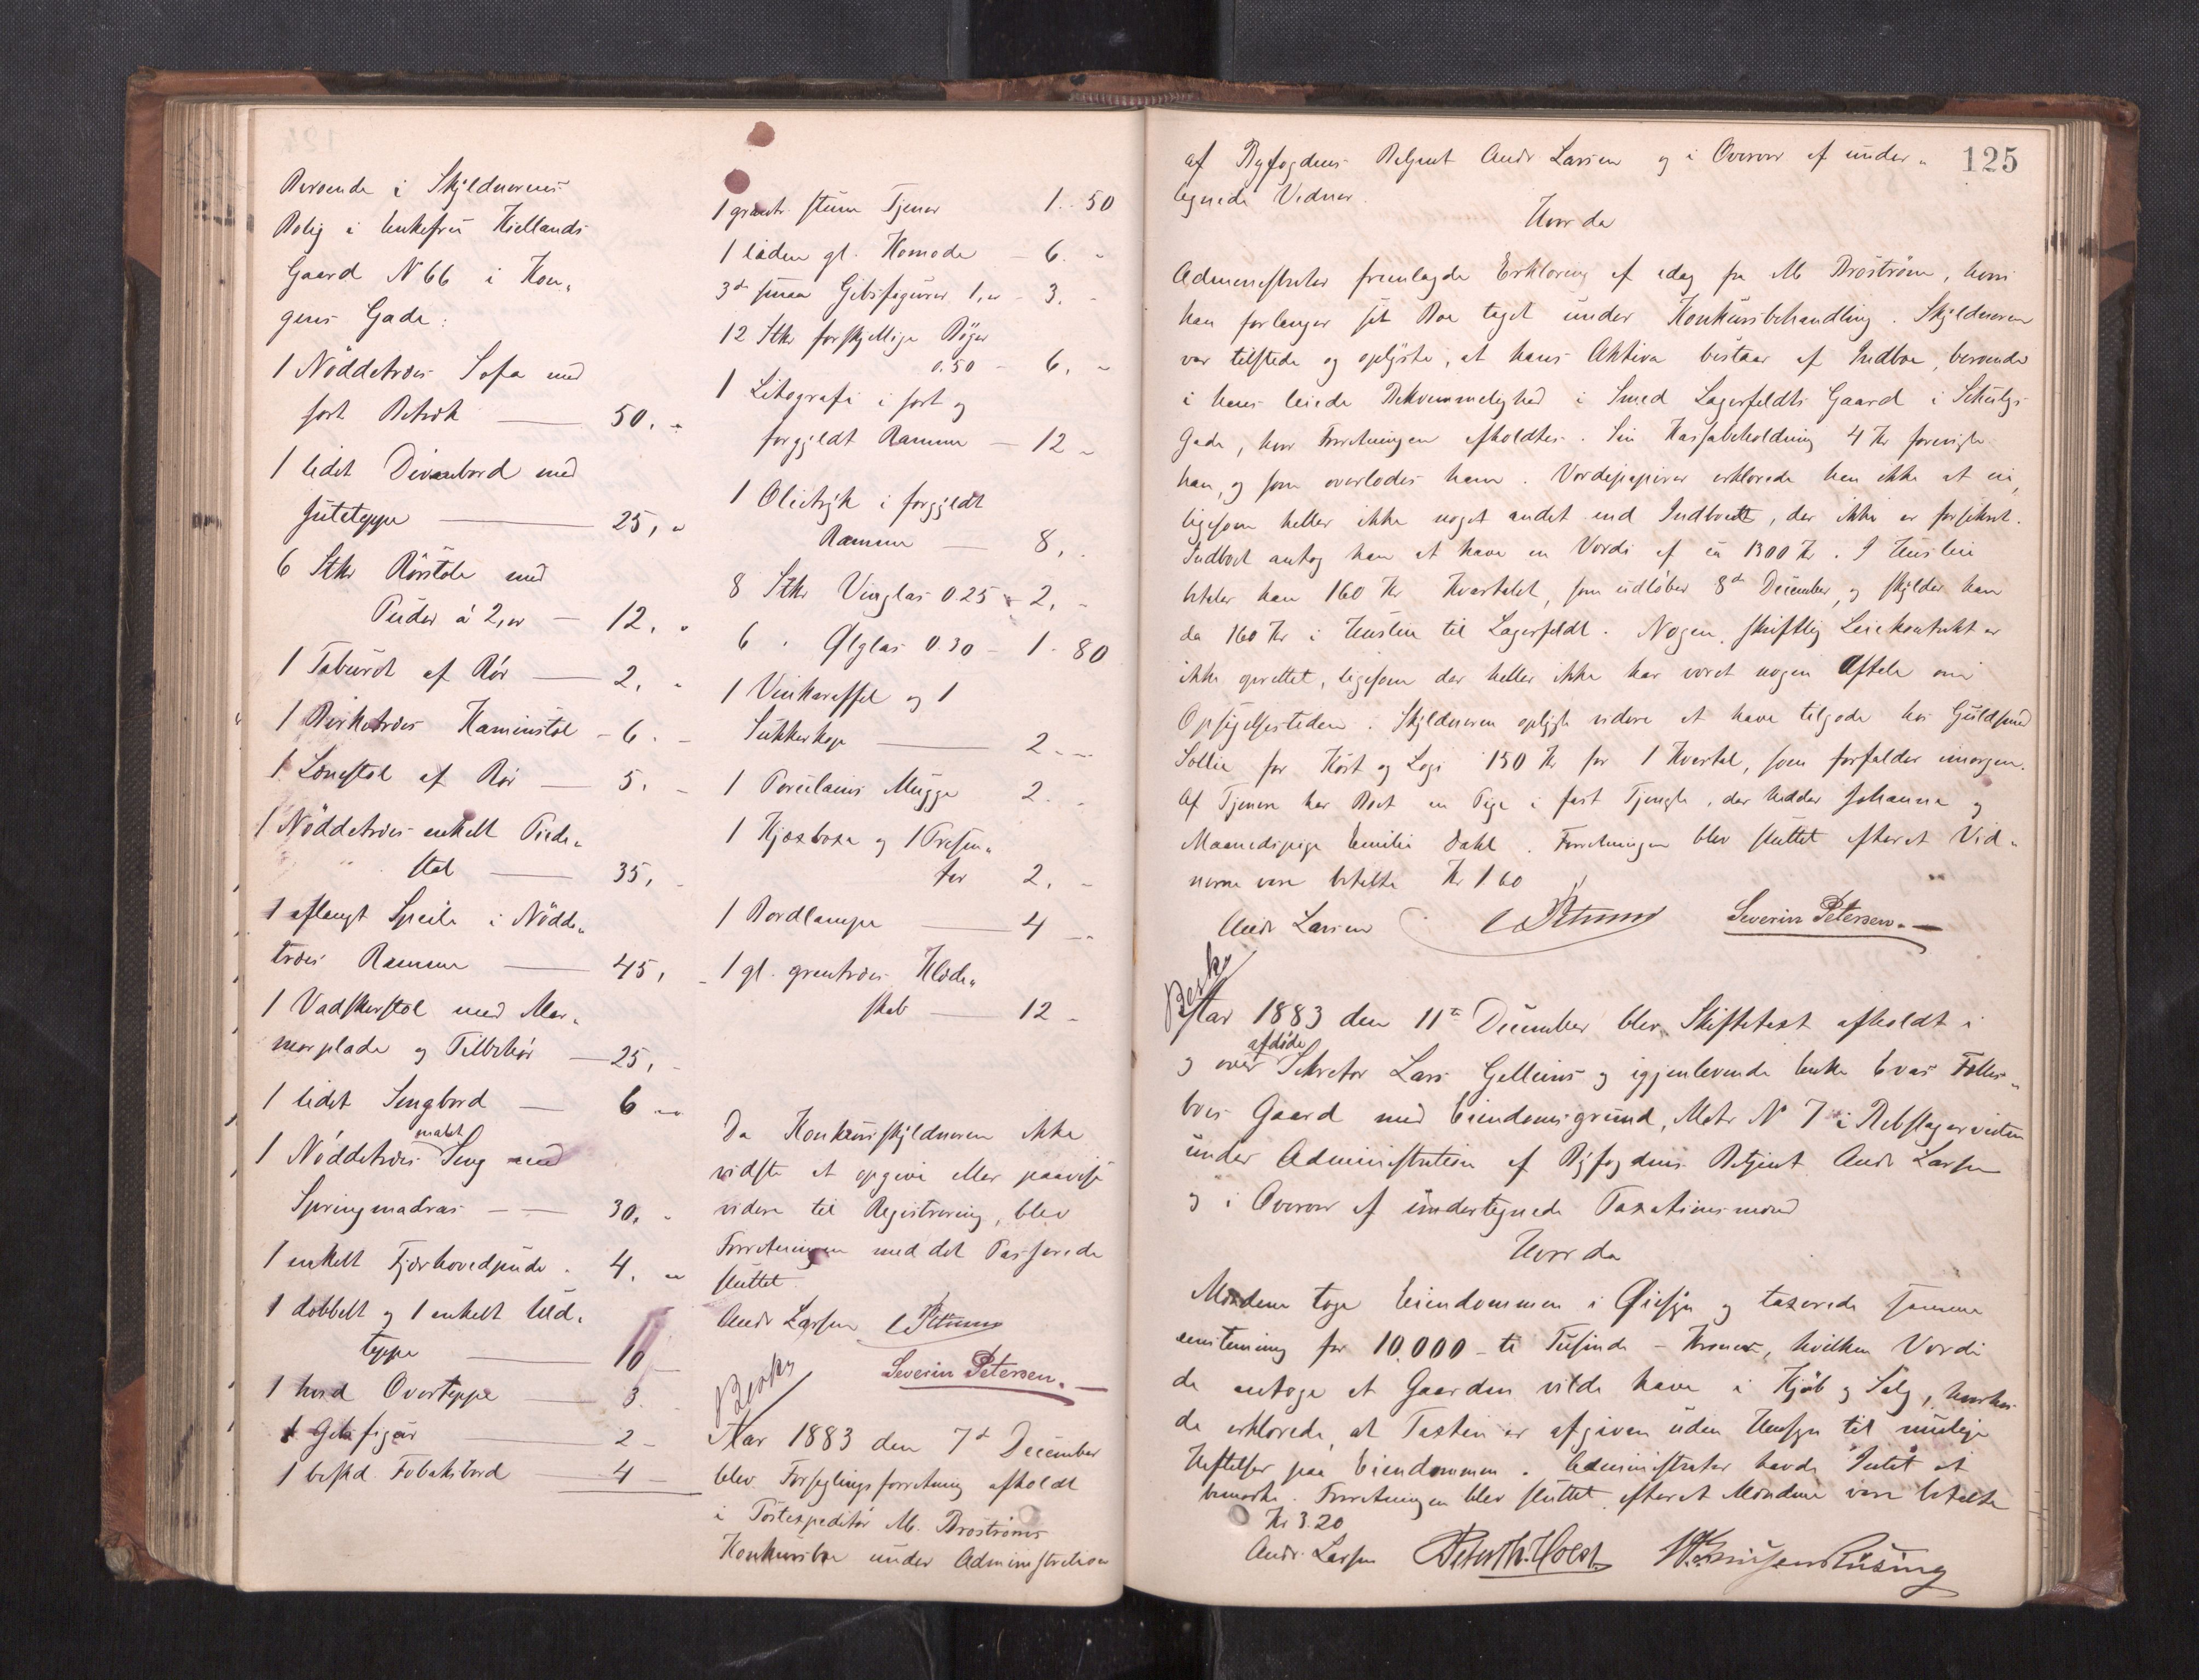 Beroende i Skyldnerens
Bolig i Enkefru Kiellands
Gaard N 66 i Kon„
gens Gade:
1 Nöddetræs Sofa med
sort Betræk — 50, „
1 lidet Divanbord med
Juteteppe — 25, „
6 Stkr Rörstole med
Puder á 2, „ — 12, „
1 Taburet af Rör — 2, „
1 Birketræs Kaminstol — 6. „
1 Lænestol af Rör — 5. „
1 Nöddetræs enkelt Piede„
stal — 35, „
1 aflangt Speile i Nödde„
træs Ramme — 45, „
1 Vadskerstol med Mar„
morplade og Tilbehör — 25, „
1 lidet Sengbord — 6 „
1 Nöddetræs malet Seng med
Springmadras — 30, „
1 enkelt Fjærhovedpude . 4, „
1 dobbelt og 1 enkelt Uld„
teppe — 10
1 hvid Overteppe — 3.
1 Gibsfigur — 2 –
1 beskd. Tobaksbord 4 –
1 grantr. stum Tjener 1. 50
1 liden gl. Komode – 6. „
3de smaa Gibsfigurer 1, „ – 3. –
12 Stkr forskjellige Böger
0.50 – 6. „
1 Litografi i sort og
forgyldt Ramme — 12 „
1 Olietryk i forgyldt
Ramme — 8, .
8 Stkr Vinglas 0.25 – 2, –
6 " Ølglas 0.30 – 1. 80
1 Vinkaraffel og 1
Sukkerkop — 2. „
1 Porcelains Mugge 2. „
1 Kjæxboxe og 1 Presen„
ter 2. –
1 Bordlampe — 4 „
1 gl. grantræs Klæde„
skab — 12 –
Da Konkursskyldneren ikke
vidste at opgive eller paavise
videre til Registrering, blev
Forretningen med det Passerede
sluttet.
Andr Larsen
Severin Petersen. —
Besk
Aar 1883 den 7de December
blev Forseglingsforretning afholdt
i Postexpeditör M. Broströms
Konkursbo under Administration
125
af Byfogdens Betjent Andr Larsen og i Overvær af under„
tegnede Vidner.
Hvor da
Administrator fremlagde Erklæring af idag fra M Broström, hvori
han forlanger sit Bo taget under Konkursbehandling. Skyldneren
var tilstede og oplyste, at hans Aktiva bestaar af Indbo, beroende
i hans leiede Bekvemmelighed i Smed Lagerfeldts Gaard i
Gade, hvor Forretningen afholdtes. Sin Kassabeholdning 4 Kr foreviste
han, og som overlodes ham. Værdipapirer erklærede han ikke at eie,
ligesom heller ikke noget andet end Indboet, der ikke er forsikret.
Indboet antog han at have en Værdi af ca 1300 Kr. I Husleie
betaler han 160 Kr Kvartalet, som udlöber 8de December, og skylder han
da 160 Kr i Husleie til Lagerfeldt. Nogen skriftlig Leiekontrakt er
ikke oprettet, ligesom der heller ikke har været nogen Aftale om
Opsigelsestiden. Skyldneren oplyste videre at have tilgode hos Guldsmed
Sollie for Kost og Logi 150 Kr for 1 Kvartal, som forfalder imorgen.
Af Tjenere har Boet en Pige i fast Tjeneste, der hedder Johanne og
Maanedspige Emilie Dahl. Forretningen blev sluttet efterat Vid„
nerne vare betalte Kr 1 60
Andr Larsen
Severin Petersen. —
Besk
Aar 1883 den 11te December blev Skiftetaxt afholdt i
og over afdöde Sekretær Lars Gelleins og igjenlevende Enke Evas Fælles„
boes Gaard med Eiendomsgrund, Matr N 7 i Rebslagerveiten
under Administration af Byfogdens Betjent Andr Larsen
og i Overvær af undertegnede Taxationsmænd
Hvor da
Mændene toge Eiendommen i Øiesyn og taxerede samme
eenstemmig for 10.000 – ti Tusinde – Kroner, hvilken Værdi
de antoge at Gaarden vilde have i Kjöb og Salg, hvorhos
de erklærede, at Taxten er afgiven uden Hensyn til mulige
Heftelser paa Eiendommen. Administrator havde Intet at
bemærke. Forretningen blev sluttet, efterat Mændene vare betalte
Kr 3.20
Andr. Larsen Peter Th. Holst